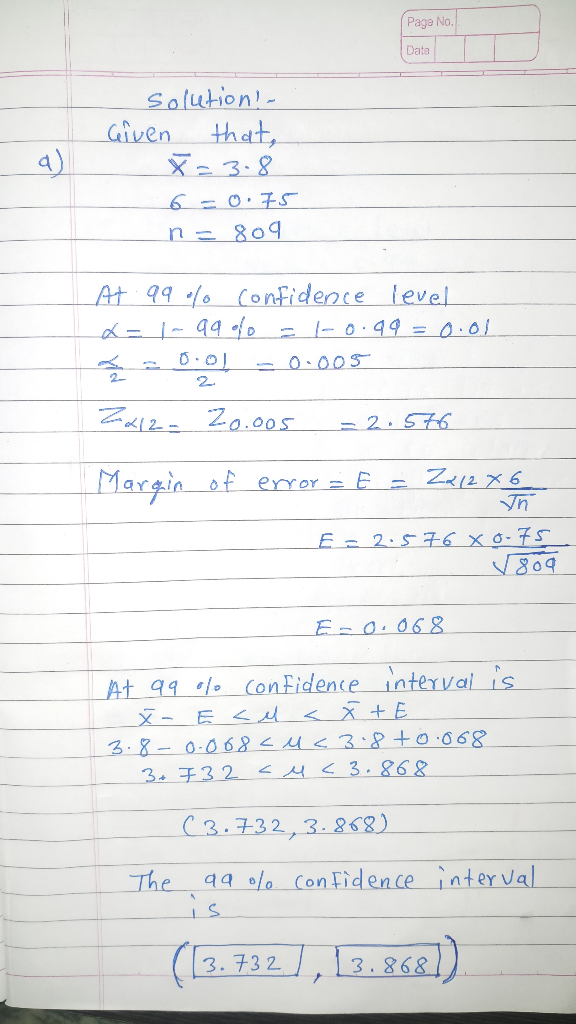 Page No.
Date
Solution:-
Given that,
a) x̄ = 3.8
6 = 0.75
n = 809
At 99 % confidence level
α = 1 - 99 % = 1 - 0.99 = 0.01
α/2 = 0.01/2 = 0.005
Zα/2 = Z0.005 = 2.576
Margin of error = E = Zα/2 × 6/√n
E = 2.576 × 0.75/√809
E = 0.068
At 99 % confidence interval is
x̄ - E < μ < x̄ + E
3.8 - 0.068 < μ < 3.8 + 0.068
3.732 < μ < 3.868
(3.732, 3.868)
The 99 % confidence interval
is
(3.732, 3.868)